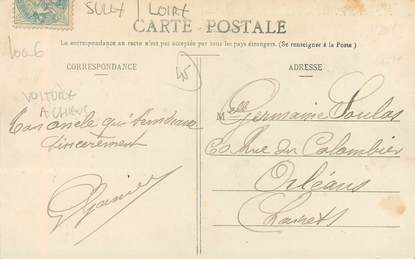 SULLY / LOIRE
CARTE POSTALE
La correspondance au recto n'est pas acceptée par tous les pays étrangers. (Se renseigner à la Poste)
CORRESPONDANCE
ADRESSE
45
VOITURE
A CHIENS
Ton oncle qui t'embrasse
sincèrement
Melle Germaine Soulas
Rue du Colombier
Orléans
Loiret